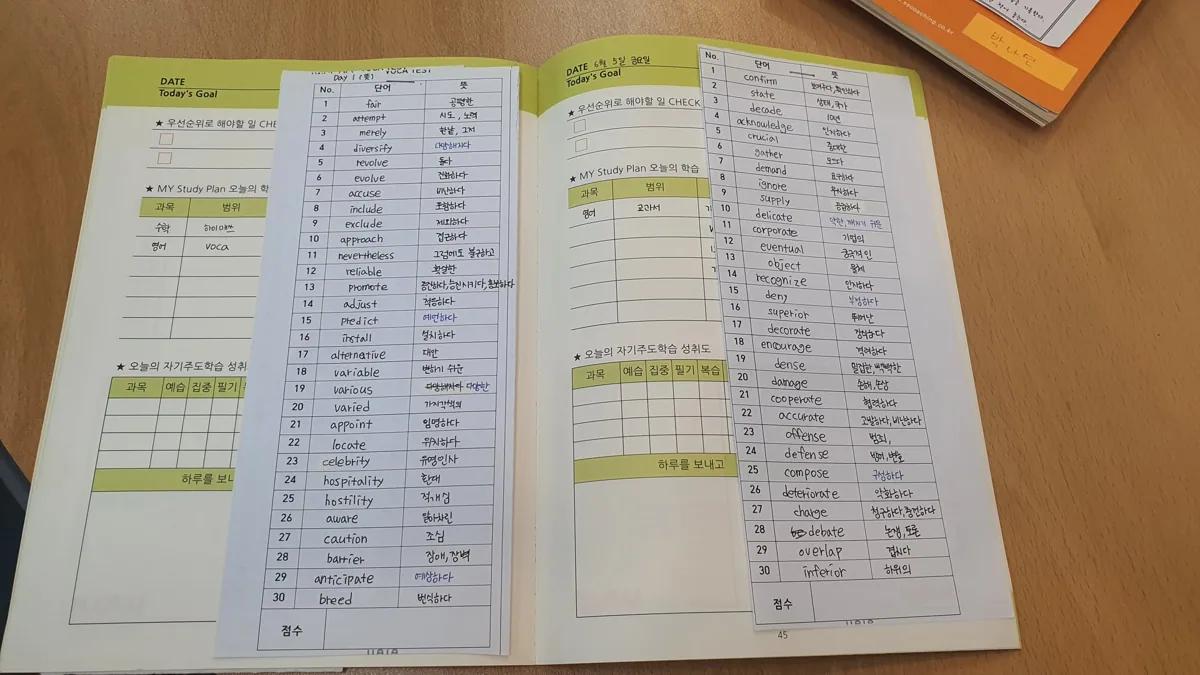 DATE
Today's Goal
★ 우선순위로 해야할 일 CHE
★ MY Study Plan 오늘의 학
과목 범위
수학
영어 voca
★ 오늘의 자기주도학습 성취도
과목 예습 집중 필기
하루를 보내
VOCA TEST
Day 1 (뜻)
No. 단어 뜻
1 fair 공평한
2 attempt 시도, 노력
3 merely 한낱, 그저
4 diversify 다양해지다
5 revolve 돌다
6 evolve 진화하다
7 accuse 비난하다
8 include 포함하다
9 exclude 제외하다
10 approach 접근하다
11 nevertheless 그럼에도 불구하고
12 reliable 확실한
13 promote 증진하다, 승진시키다, 홍보하다
14 adjust 적응하다
15 predict 예언하다
16 install 설치하다
17 alternative 대안
18 variable 변하기 쉬운
19 various 다양해지다 다양한
20 varied 가지각색의
21 appoint 임명하다
22 locate 위치하다
23 celebrity 유명인사
24 hospitality 환대
25 hostility 적개심
26 aware 알아차린
27 caution 조심
28 barrier 장애, 장벽
29 anticipate 예상하다
30 breed 번식하다
점수
DATE 6월 5일 금요일
Today's Goal
★ 우선순위로 해야할 일 CHECK
★ MY Study Plan 오늘의 학습
과목 범위
영어 교과서
★ 오늘의 자기주도학습 성취도
과목 예습 집중 필기 복습
하루를 보내고
No. 단어 뜻
1 confirm 보여주다, 확인하다
2 state 상태, 국가
3 decade 10년
4 acknowledge 인지하다
5 crucial 중대한
6 gather 모으다
7 demand 요구하다
8 ignore 무시하다
9 supply 공급하다
10 delicate 약한, 깨지기 쉬운
11 corporate 기업의
12 eventual 궁극적인
13 object 물체
14 recognize 인지하다
15 deny 부정하다
16 superior 뛰어난
17 decorate 장식하다
18 encourage 격려하다
19 dense 밀집한, 빽빽한
20 damage 손해, 손상
21 cooperate 협력하다
22 accurate 고발하다, 비난하다
23 offense 범죄,
24 defense 방어, 변호
25 compose 구성하다
26 deteriorate 악화하다
27 charge 청구하다, 충전하다
28 debate 논쟁, 토론
29 overlap 겹치다
30 inferior 하위의
점수
45